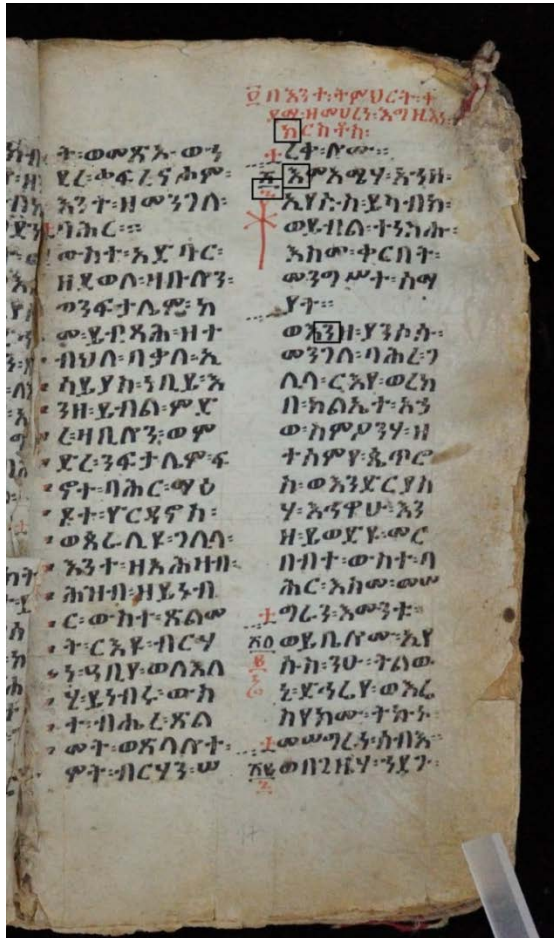 ት፡ወመጽአ፡ወኀ
ደረ፡ቅፍረናሖም፡
እንተ፡ዘመንገለ፡
ባሕር።
ውስተ፡አድባር፡
ዘደወለ፡ዛቡሎን፡
ወንፍታሌም፡ከ
መ፡ይብጻሕ፡ዘተ
ብህለ፡በቃለ፡ኢ
ሳይያስ፡ነቢይ፡እ
ንዘ፡ይብል፡ምድ
ረ፡ዛቢሎን፡ወም
ድረ፡ንፍታሌም፡ፍ
ኖተ፡ባሕር፡ማዕ
ዶተ፡ዮርዳኖስ፡
ገሊላ፡
እንተ፡ዘአሕዛብ፡
ሕዝብ፡ዘይነብ
ር፡ውስተ፡ጽልመ
ት፡ርእዩ፡ብርሃ
ነ፡ዓቢየ፡ወለእለ
ሂ፡ይነብሩ፡ውስ
ተ፡ብሔረ፡ጽል
መት፡ወጽላሎተ፡
ሞት፡ብርሃን፡ሠ
በእንተ፡ትምህርት፡ቀ
ዳሚ፡ዘመሀረነ፡እግዚእነ፡
ክርስቶስ፡
ረቀ፡ሎሙ።
እምአሜሃ፡አንዘ፡
ኢየሱስ፡ይስብክ፡
ወይብል፡ተነስሑ፡
እስመ፡ቀርበት፡
መንግሥተ፡ሰማ
ያት።
ወእንዘ፡ያንሶሱ፡
መንገለ፡ባሕረ፡ገ
ሊላ፡ርእየ፡ወረክ
በ፡ክልኤተ፡አኃ
ወ፡ስምዖንሃ፡ዘ
ተሰምየ፡ጴጥሮ
ስ፡ወእንድርያስ
ሃ፡እኁዋሁ፡እን
ዘ፡ይወድዩ፡መር
በብተ፡ውስተ፡ባ
ሕር፡እስመ፡መሠ
ግራን፡እሙንቱ፡
ወይቤሎሙ፡ኢየ
ሱስ፡ንዑ፡ትልው
ኒ፡ድኅሬየ፡ወእሬ
ስየክሙ፡ትኩኑ፡
መሠግረነ፡ሰብእ፡
ወበጊዜሃ፡ኀደጉ፡